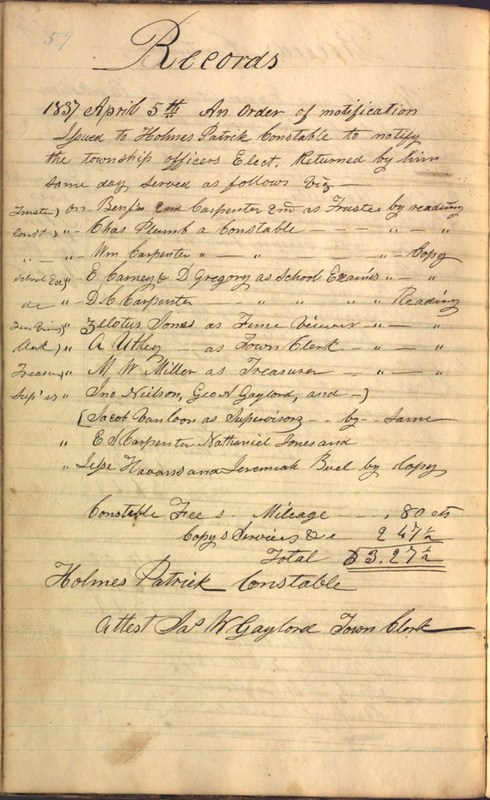 59
Records
1837 April 5th An order of notification
Issued to Holmes Patrick Constable to notify
the township officers Elect. Returned by him
same day served as follows viz —
Trustee) on Benj Carpenter as Trustee by reading
Const) " Chas Plumb a Constable — — — " —
" — " Wm Carpenter " — " " — " Copy
School Ex " E Carney & D Gregory as School Exam's " — "
do " D. C Carpenter " " " " Reading
Fen View) " Zelotus Jones as Fence Viewer — " — "
Clerk) " A Utley — as Town Clerk — " — "
Treasur) " M W Miller as Treasurer — " — "
Sup'ers " Jno Neilson, Geo N Gaylord, and —)
(Jacob Vanloon as Supervisors — by — same
" E S Carpenter Nathaniel Jones and
" Jesse Havens and Jeremiah Buel by Copy
Constable Fees. Mileage — . 80 cts
Copy & Services &c 2 47½
Total $3.27½
Holmes Patrick Constable
Attest Jas W Gaylord Town Clerk